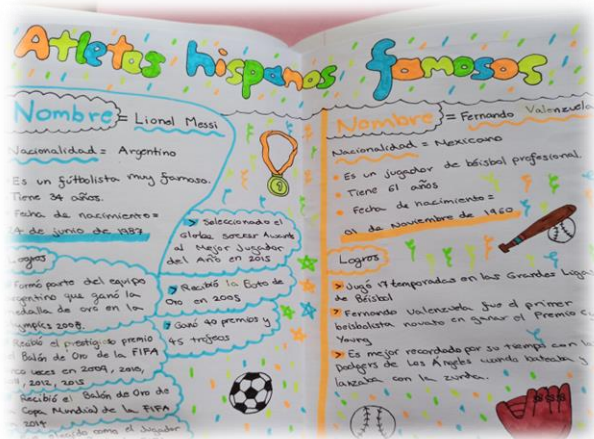 Atletas hispanos famosos
Nombre = Lionel Messi
Nacionalidad = Argentino
Es un fútbolista muy famoso.
Tiene 34 años.
Fecha de nacimiento =
4 de junio de 1987
Logros
Formó parte del equipo
argentino que ganó la
medalla de oro en la
Olympics 2008.
Recibió el prestigioso premio
Balón de Oro de la FIFA
veces en 2009, 2010,
2012, 2015
Recibió el Balón de Oro de
Copa Mundial de la FIFA
2014
como el Jugador
> Seleccionado el
Globe Soccer Awards
al Mejor Jugador
del Año en 2015
> Recibió la Bota de
Oro en 2005
> Ganó 40 premios y
45 trofeos
Nombre = Fernando Valenzuela
Nacionalidad = Mexicano
• Es un jugador de béisbol profesional.
• Tiene 61 años
• Fecha de nacimiento =
01 de Noviembre de 1960
Logros
> Jugó 17 temporadas en las Grandes Ligas
de Béisbol
> Fernando Valenzuela fue el primer
beisbolista novato en ganar el Premio Cy
Young
> Es mejor recordado por su tiempo con los
Dodgers de Los Ángeles cuando bateaba y
lanzaba con la zurda.